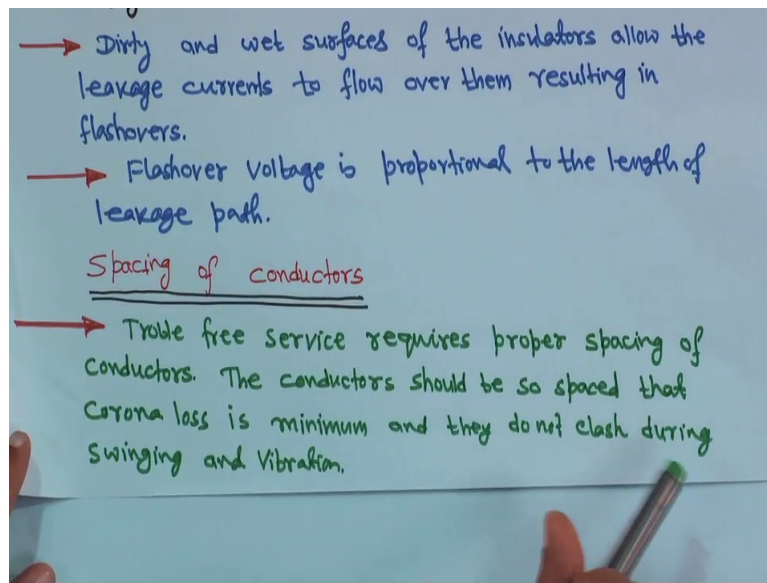 Dirty and wet surfaces of the insulators allow the
leakage currents to flow over them resulting in
flashovers.
Flashover Voltage is proportional to the length of
leakage path.
Spacing of conductors
Troble free service requires proper spacing of
conductors. The conductors should be so spaced that
Corona loss is minimum and they do not clash during
Swinging and Vibration.